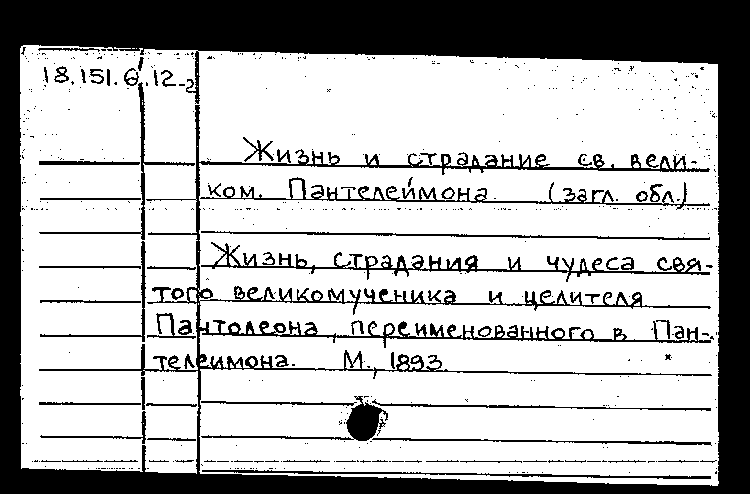 18.151.6.12-2
Жизнь и страдание св. вели-
ком. Пантелеймона (загл. обл.)
Жизнь, страдания и чудеса свя-
того великомученика и целителя
Пантолеона, переименованного в Пан-
телеимона. М., 1893